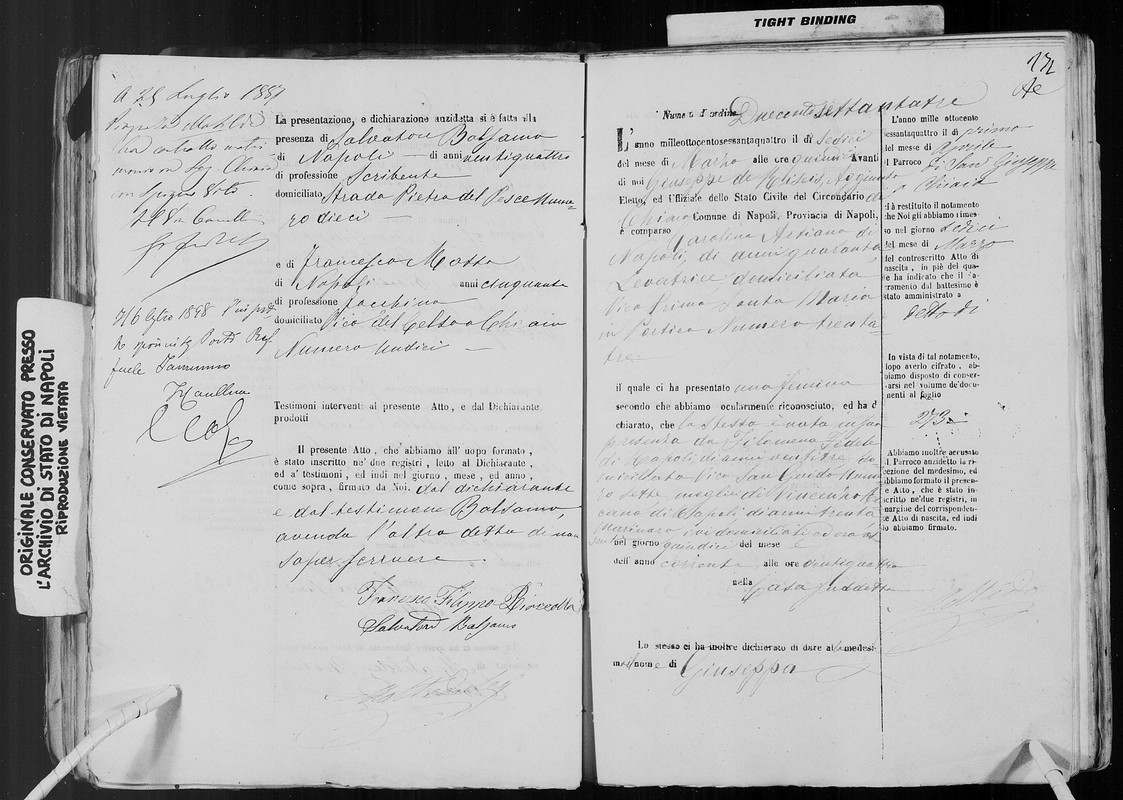 TIGHT BINDING
ORIGINALE CONSERVATO PRESSO
L'ARCHIVIO DI STATO DI NAPOLI
RIPRODUZIONE VIETATA
A 25 Luglio 1887
La presentazione, e dichiarazione anzidetta si è fatta alla
presenza di Salvatore Balsamo
di Napoli — di anni ventiquattro
di professione Scribente
domiciliato Strada Pietra del Pesce Nume-
ro dieci —
e di Francesco Motta
di Napoli anni cinquanta
di professione facchino
domiciliato Vico del Celso a Chiaia
Numero Undici —
Testimoni intervenuti al presente Atto, e dal Dichiarante
prodotti
Il presente Atto, che abbiamo all' uopo formato,
è stato inscritto ne' due registri, letto al Dichiarante,
ed a' testimoni, ed indi nel giorno, mese, ed anno,
come sopra, firmato da Noi. dal dichiarante
e dal testimone Balsamo
avendo l'altro detto di non
saper scrivere.
Salvatore Balsamo
Numero d'ordine Duecentosettantatre
L'anno milleottocentosessantaquattro il dì sedici
del mese di Marzo alle ore quindici Avanti
di noi Giuseppe de Aggiunto
Eletto, ed Uffiziale dello Stato Civile del Circondario di
Chiaia Comune di Napoli, Provincia di Napoli,
è comparso Carolina
Napoli, di anni quaranta
Levatrice domiciliata
Vico Primo Santa Maria
in Portico Numero trenta-
tre
il quale ci ha presentato una femina
secondo che abbiamo ocularmente riconosciuto, ed ha d
chiarato, che la stessa è nata in sua
presenza da Filomena Fedele
di Napoli di anni ventitre do-
miciliata Vico San Guido Nume-
ro sette moglie di Vincenzo
di Napoli di anni trenta
marinaro ivi domiciliato
nel giorno quindici del mese
dell' anno corrente, alle ore ventiquattro
nella Casa suddetta
Lo stesso ci ha inoltre dichiarato di dare alla medesi-
ma il nome di Giuseppa
L'anno mille ottocento
sessantaquattro il dì primo
del mese di Aprile
il Parroco di San Giuseppe
a Chiaia
ci è restituito il notamento
che Noi gli abbiamo rimes
so nel giorno sedici
del mese di Marzo
del controscritto Atto di
nascita, in piè del qua-
le ha indicato che il sa-
cramento dal battesimo è
stato amministrato a
detto dì
In vista di tal notamento,
dopo averlo cifrato, ab-
biamo disposto di conser-
varsi nel volume de' docu-
menti al foglio
273
Abbiamo inoltre accusato
il Parroco anzidetto la ri-
cezione del medesimo, ed
abbiamo formato il presen-
te Atto, che è stato in-
scritto ne' due registri, in
margine del corrispondente
te Atto di nascita, ed indi
lo abbiamo firmato.